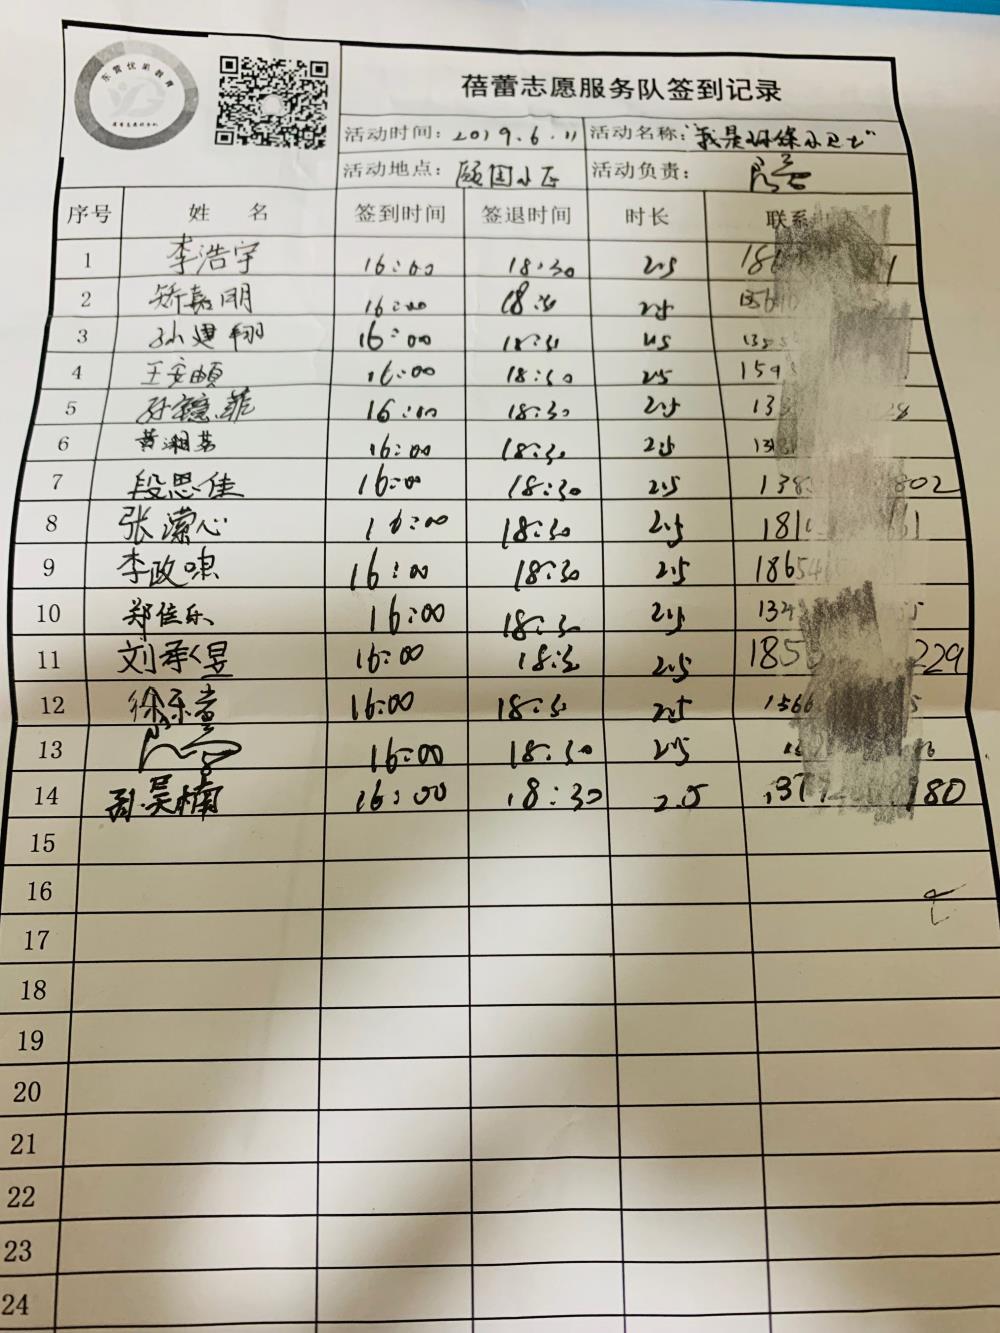 东营优弟教育
蓓蕾志愿服务队签到记录
活动时间：2019.6.11 活动名称："我是环保小卫士"
活动地点：颐园小区 活动负责：
序号 姓名 签到时间 签退时间 时长 联系
1 李浩宇 16:00 18:30 2.5
2 矫嘉明 16:00 18:30 2.5
3 孙建翔 16:00 18:30 2.5
4 16:00 18:30 2.5
5 16:00 18:30 2.5
6 16:00 18:30 2.5
7 段思佳 16:00 18:30 2.5 138 802
8 张潆心 16:00 18:30 2.5
9 李政 16:00 18:30 2.5 18654
10 郑佳乐 16:00 18:30 2.5 134
11 刘承昱 16:00 18:30 2.5 185 229
12 徐乐萱 16:00 18:30 2.5 1566
13 16:00 18:30 2.5
14 孙昊楠 16:00 18:30 2.5 137 180
15
16
17
18
19
20
21
22
23
24